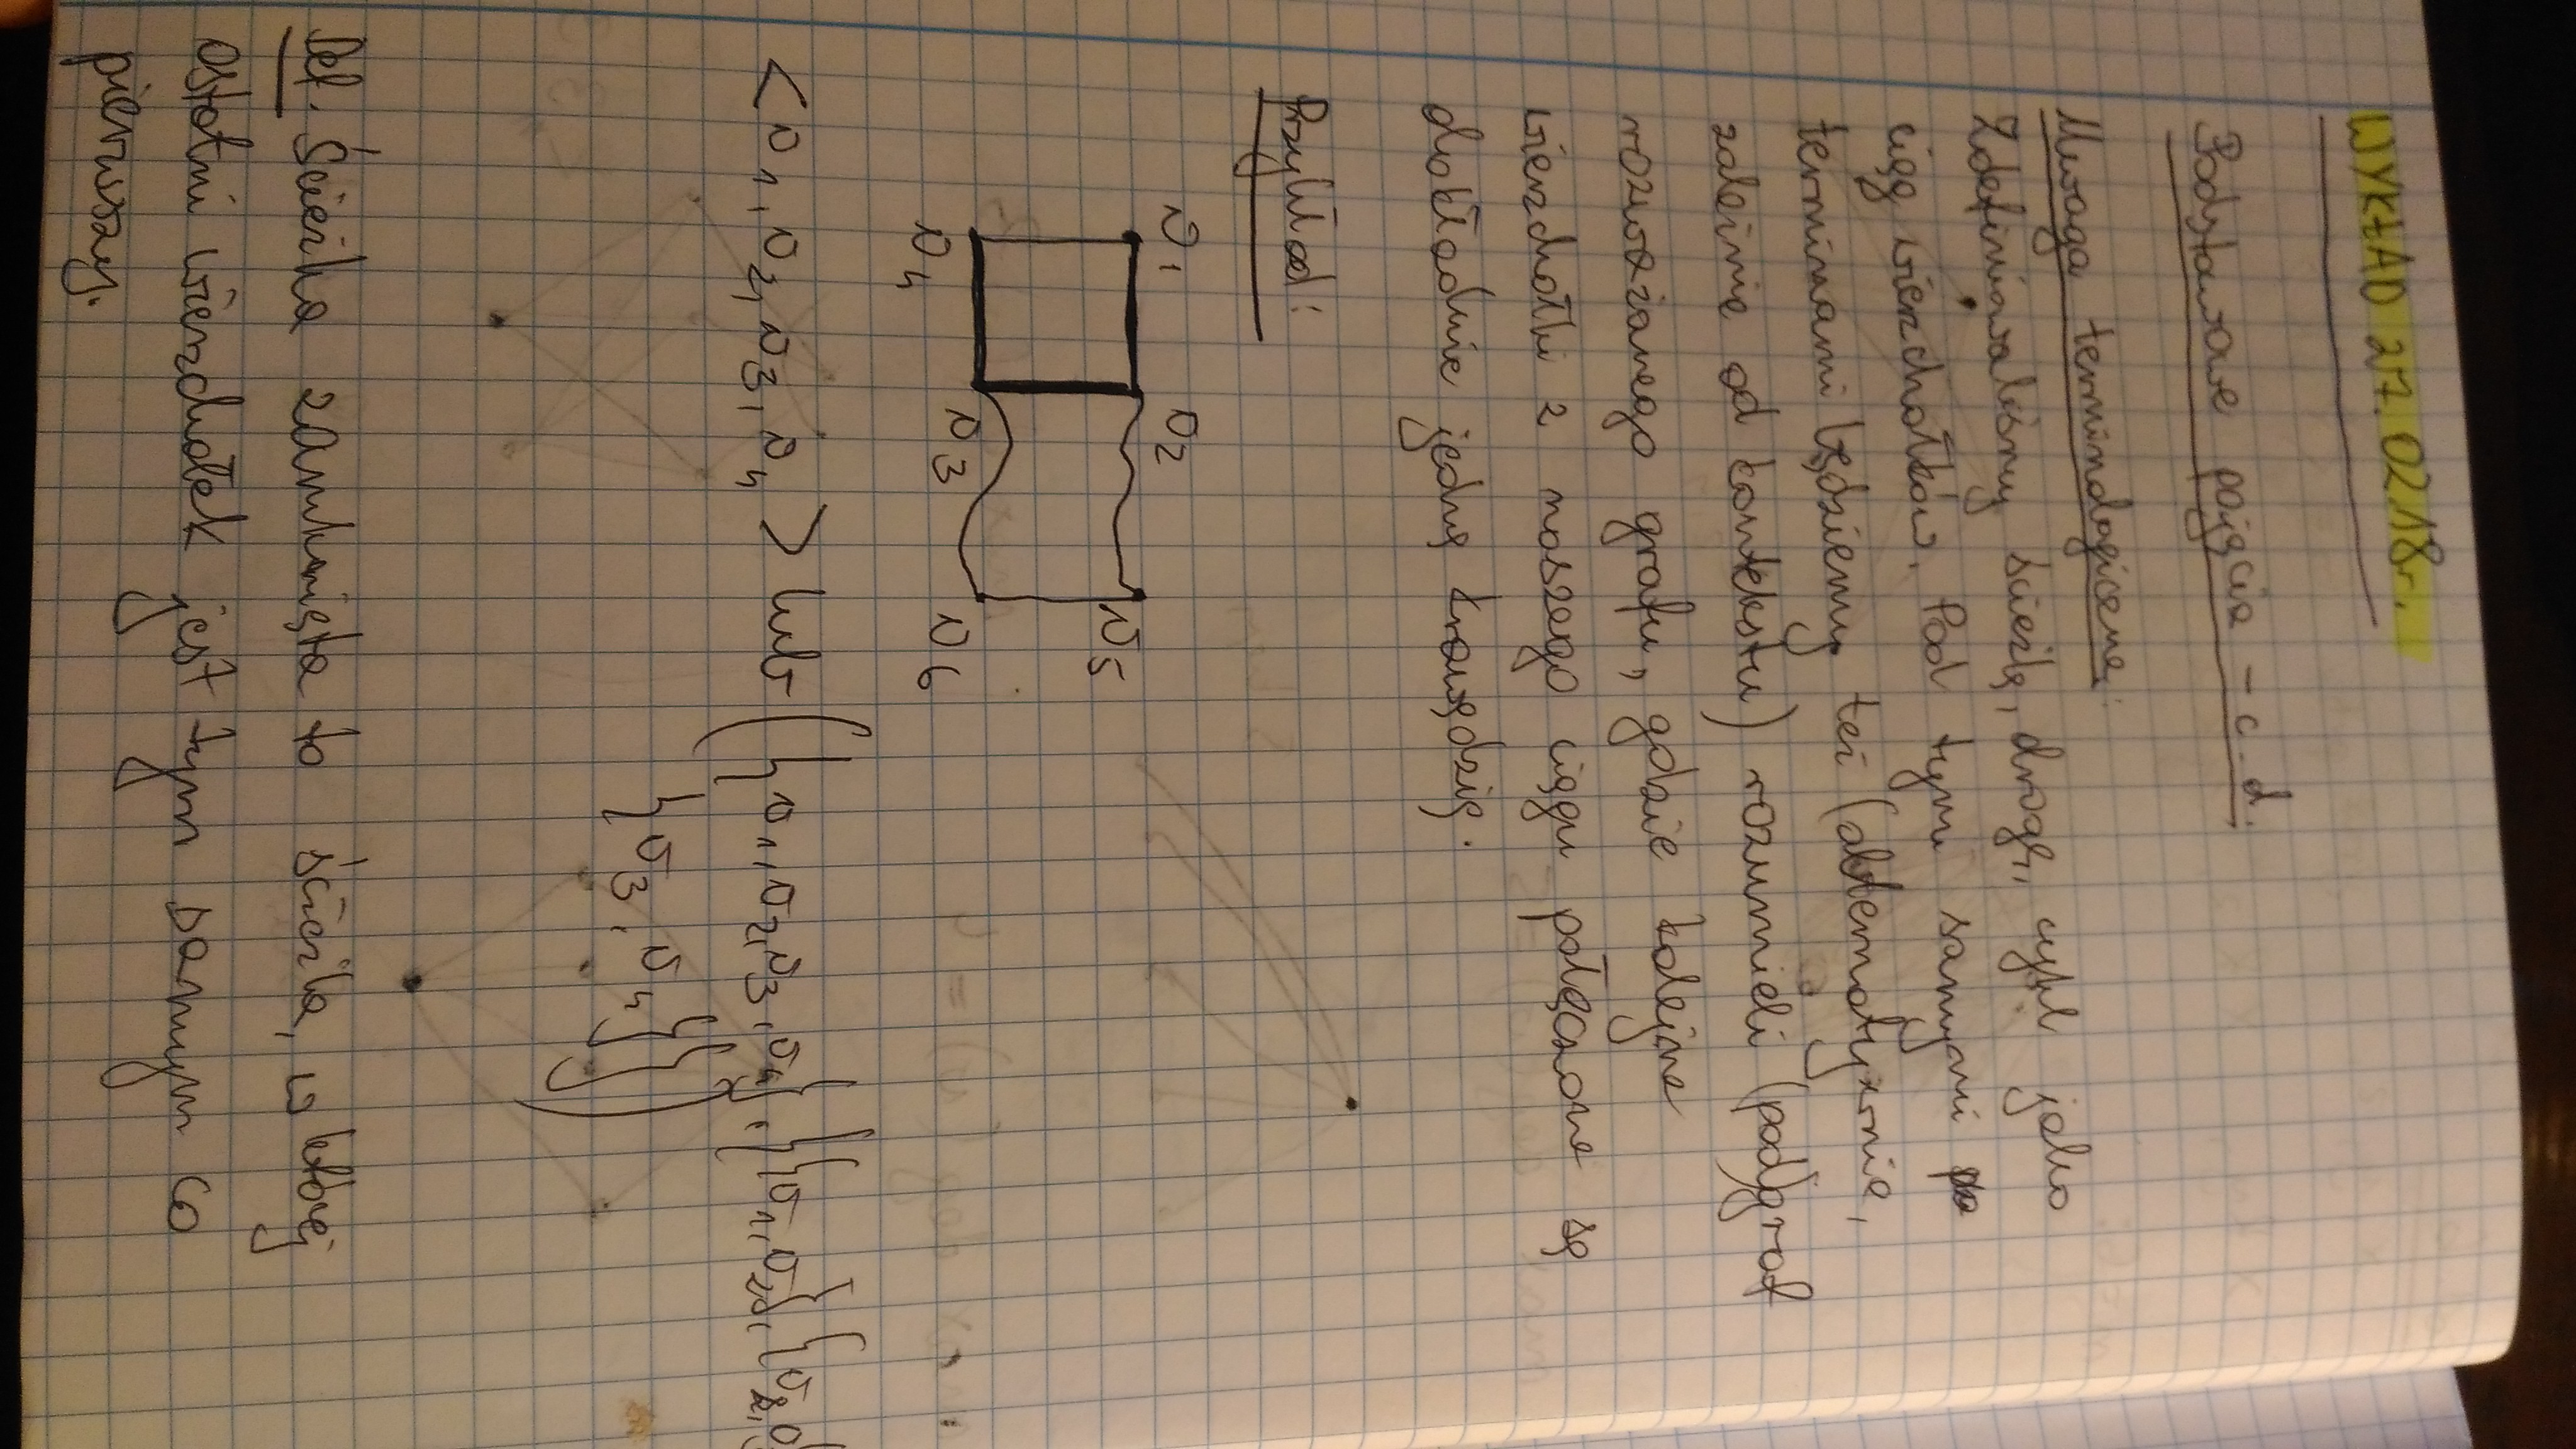 WYKŁAD 27.02.18r.
Podstawowe pojęcia - c.d.
Uwaga terminologiczna:
Zdefiniowaliśmy ścieżkę, drogę, cykl jako
ciąg wierzchołków. Pod tymi samymi
terminami będziemy też (alternatywnie,
zależnie od kontekstu) rozumieli (pod)graf
rozważanego grafu, gdzie kolejne
wierzchołki z naszego ciągu połączone są
dokładnie jedną krawędzią.
Przykład:
v1 v2
v5
v3
v4 v6
<v1, v2, v3, v4> lub ({v1, v2, v3, v4}, {{v1, v2}, {v2, v3
{v3, v4}})
Def. Ścieżka zamknięta to ścieżka, w której
ostatni wierzchołek jest tym samym co
pierwszy.